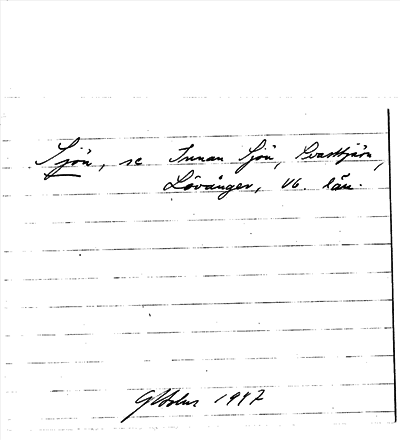 Sjön, se Innan Sjön, Kvasstjärn,
Lövånger, Vb. län.
1947